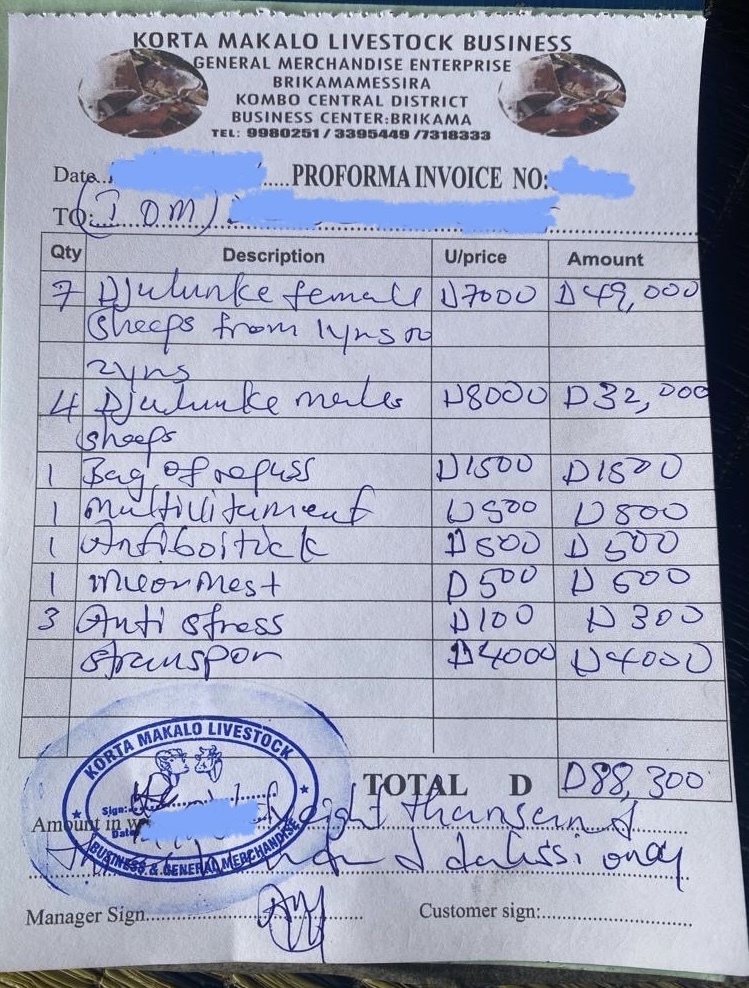 KORTA MAKALO LIVESTOCK BUSINESS
GENERAL MERCHANDISE ENTERPRISE
BRIKAMAMESSIRA
KOMBO CENTRAL DISTRICT
BUSINESS CENTER:BRIKAMA
TEL: 9980251 / 3395449 /7318333
Date............PROFORMA INVOICE NO:
TO: (IOM)
Qty Description U/price Amount
7 Djulunke female D7000 D49,000
sheeps from 1yrs to
2yrs
4 Djulunke males D8000 D32,000
sheeps
1 Bag of repass D1500 D1500
1 Multivitament D500 D500
1 Antiboitick D500 D500
1 D500 D500
3 Anti stress D100 D300
transpor D4000 D4000
TOTAL D D88,300
KORTA MAKALO LIVESTOCK
Sign:
Date
BUSINESS & GENERAL MERCHANDISE
Amount in eight thousand
dalassi only
Manager Sign............ Customer sign:............